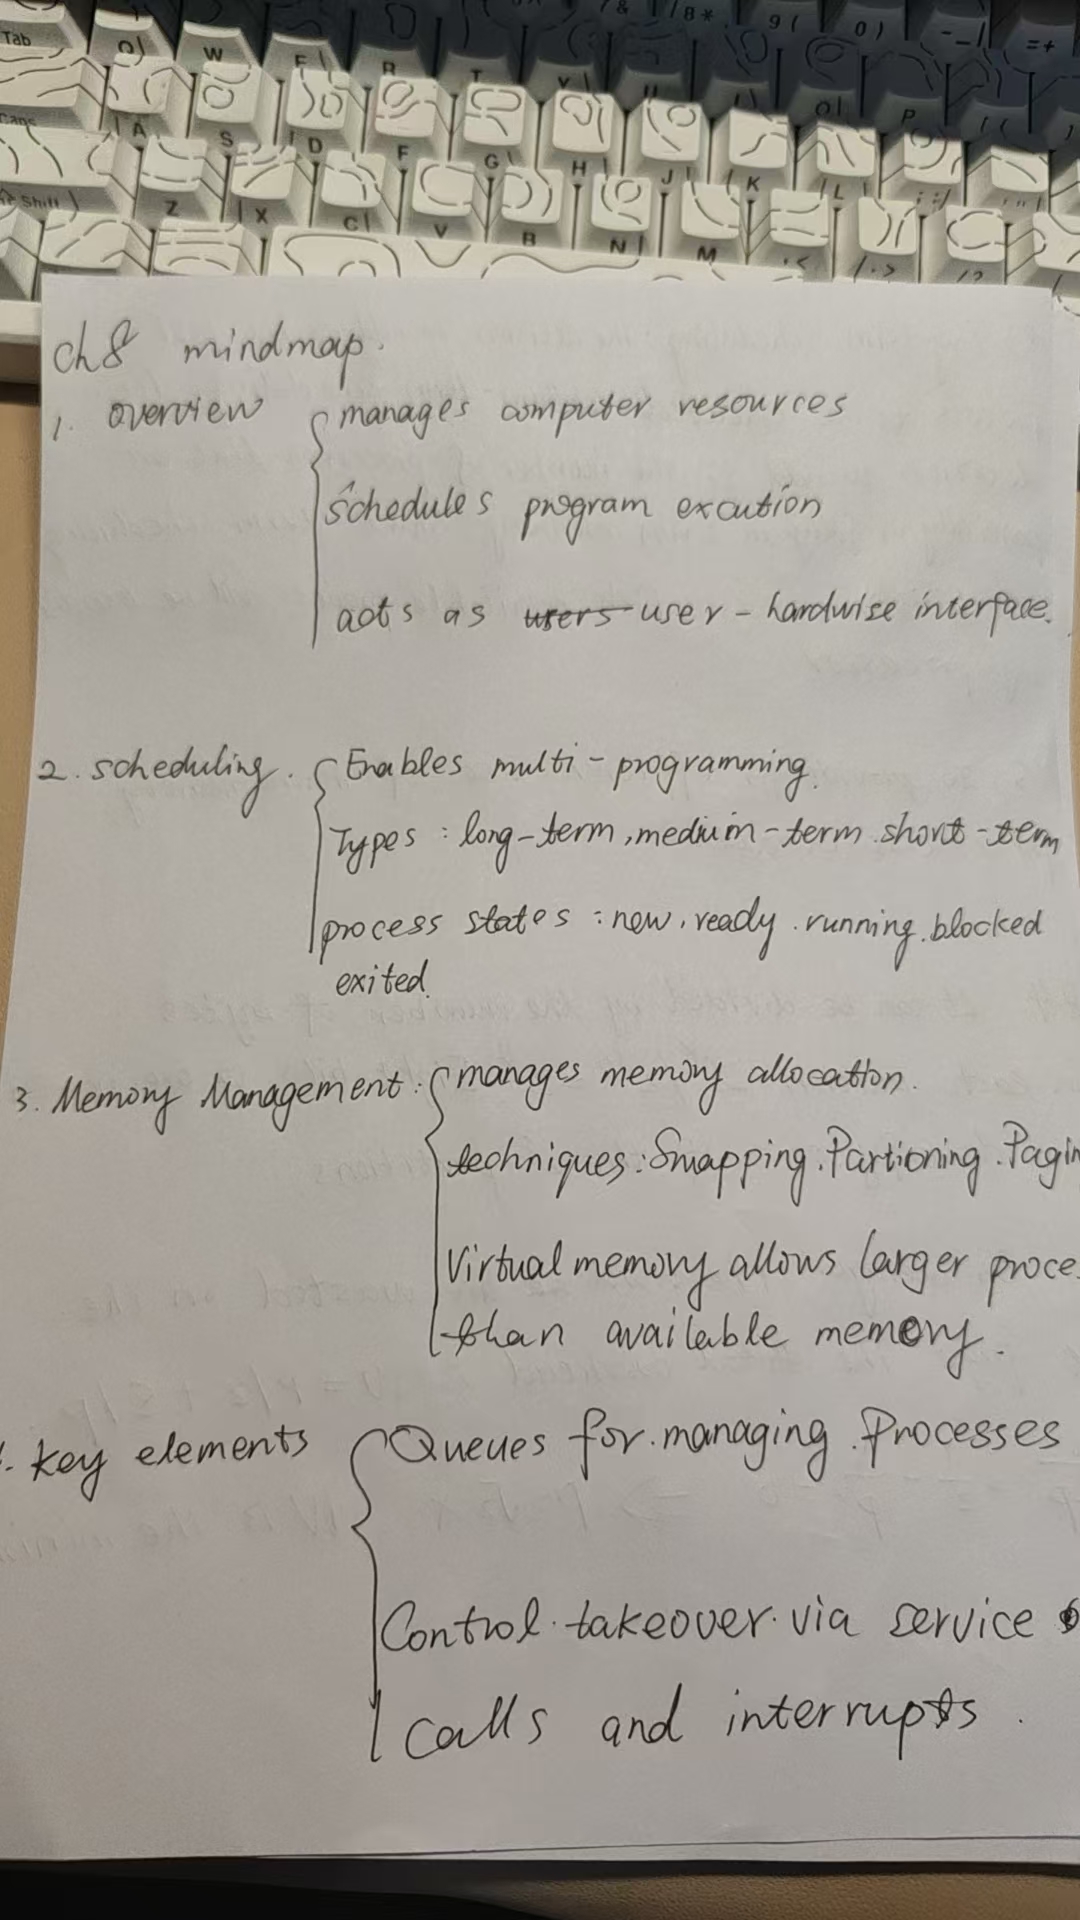 Tab Q W E R T Y U I O P
A S D F G H J K L
Shift Z X C V B N M
ch8 mindmap.
1. overview manages computer resources
schedules program excution
acts as users user - hardwise interface.
2. scheduling. Enables multi-programming.
Types: long-term, medium-term. short-term
process states: new, ready. running. blocked
exited.
3. Memory Management: manages memory allocation.
techniques: Smapping. Partioning. Pagin
Virtual memory allows larger proce
than available memory.
. key elements Queues for managing Processes
Control takeover via service
calls and interrupts.